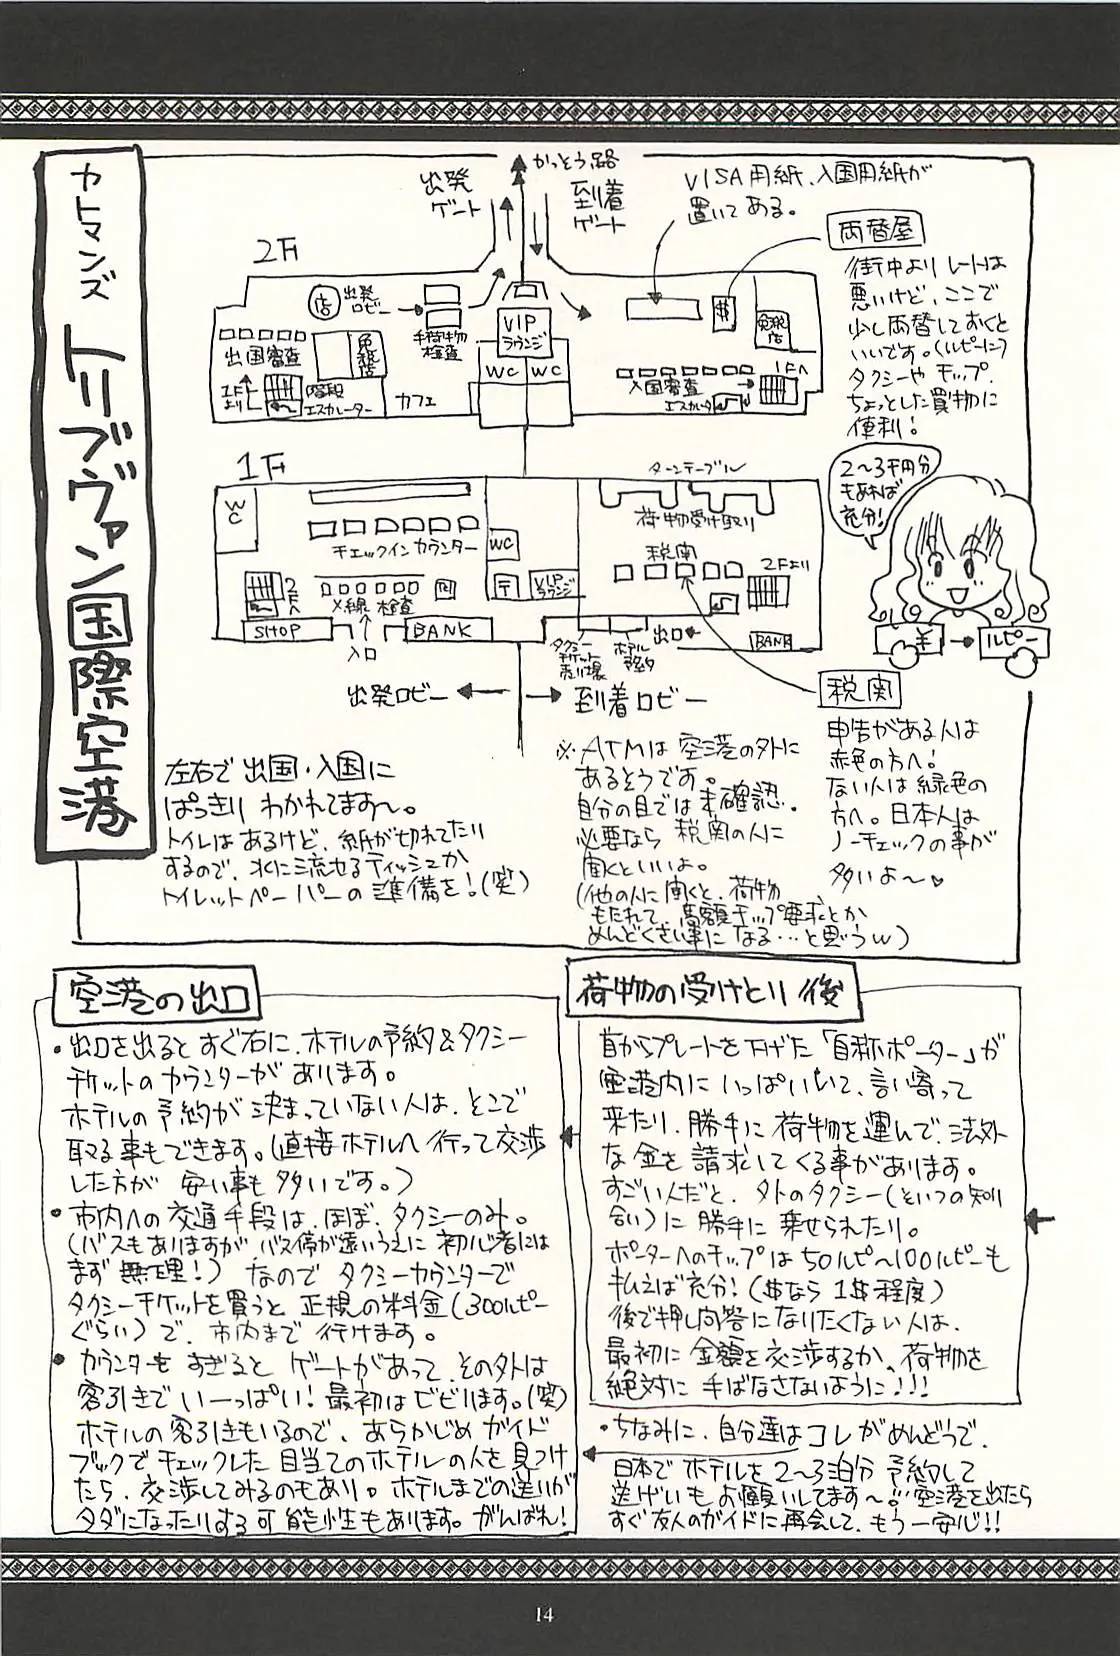 カトマンズ
トリブヴァン国際空港
かっとう路
出発
ゲート
到着
ゲート
VISA用紙、入国用紙が
置いてある。
両替屋
街中よりレートは
悪いけど、ここで
少し両替しておくと
いいです。(ルピーに)
タクシーやチップ、
ちょっとした買物に
便利!
2〜3千円分
もあれば
充分!
¥
ルピー
2F
店
出発
ロビー
手荷物
検査
VIP
ラウンジ
WC
WC
出国審査
免税店
1F
より
階段
エスカレーター
カフェ
$
免税店
入国審査
エスカレータ
1Fへ
1F
WC
チェックインカウンター
2Fへ
X線検査
SHOP
入口
BANK
WC
〒
VIP
ラウンジ
ターンテーブル
荷物受け取り
税関
2Fより
タクシー
チケット
売り場
ホテル
予約
出口
BANK
出発ロビー
到着ロビー
税関
申告がある人は
赤色の方へ!
ない人は緑色の
方へ。日本人は
ノーチェックの事が
多いよ〜♥
左右で出国・入国に
ぱっきりわかれてます〜。
トイレはあるけど、紙が切れてたり
するので、水に流せるティッシュか
トイレットペーパーの準備を!(笑)
※ATMは空港の外に
あるそうです。
自分の目では未確認。
必要なら税関の人に
聞くといいよ。
(他の人に聞くと、荷物
もたれて、高額チップ要求とか
めんどくさい事になる…と思うw)
空港の出口
・出口を出るとすぐ右に、ホテルの予約&タクシー
チケットのカウンターがあります。
ホテルの予約が決まっていない人は、そこで
取る事もできます。(直接ホテルへ行って交渉
した方が安い事も多いです。)
・市内への交通手段は、ほぼ、タクシーのみ。
(バスもありますがバス停が遠いうえに初心者には
まず無理!)なのでタクシーカウンターで
タクシーチケットを買うと正規の料金(300ルピー
ぐらい)で、市内まで行けます。
・カウンターをすぎるとゲートがあって、その外は
客引きでい一っぱい!最初はビビります。(笑)
ホテルの客引きもいるので、あらかじめガイド
ブックでチェックした目当てのホテルの人を見つけ
たら、交渉してみるのもあり。ホテルまでの送りが
タダになったりする可能性もあります。がんばれ!
荷物の受けとり後
首からプレートを下げた「自称ポーター」が
空港内にいっぱいいて、言い寄って
来たり、勝手に荷物を運んで、法外
な金を請求してくる事があります。
すごい人だと、外のタクシー(といつの知り
合い)に勝手に乗せられたり。
ポーターへのチップは50ルピー〜100ルピーも
払えば充分!($なら1$程度)
後で押し問答になりたくない人は、
最初に金額を交渉するか、荷物を
絶対に手ばなさないように!!!
・ちなみに、自分達はコレがめんどうで、
日本でホテルを2〜3泊分予約して
送げいもお願いしてます〜!!空港を出たら
すぐ友人のガイドに再会して、もう一安心!!
14